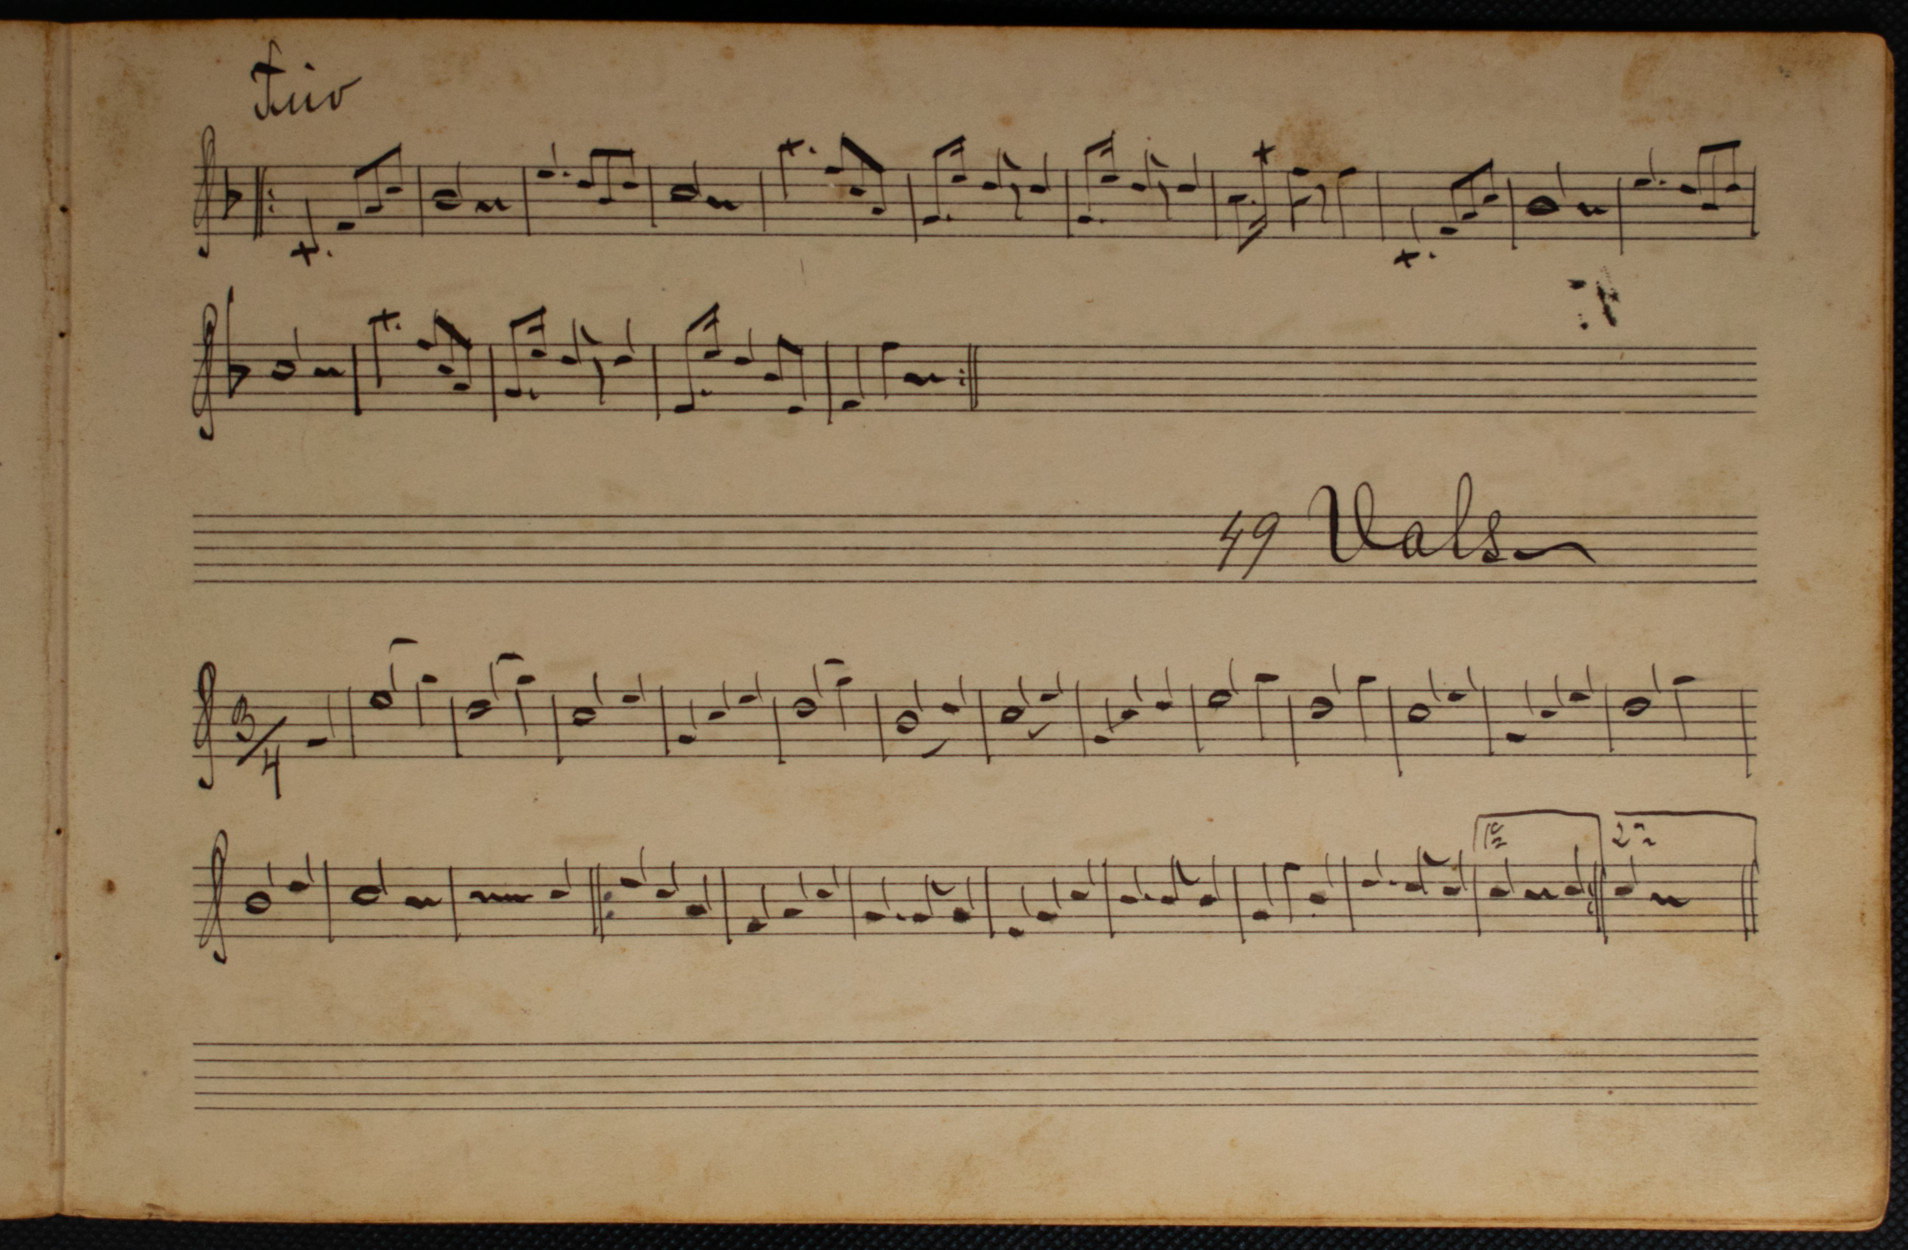 Trio
49 Vals
3/4
1ª
2ª